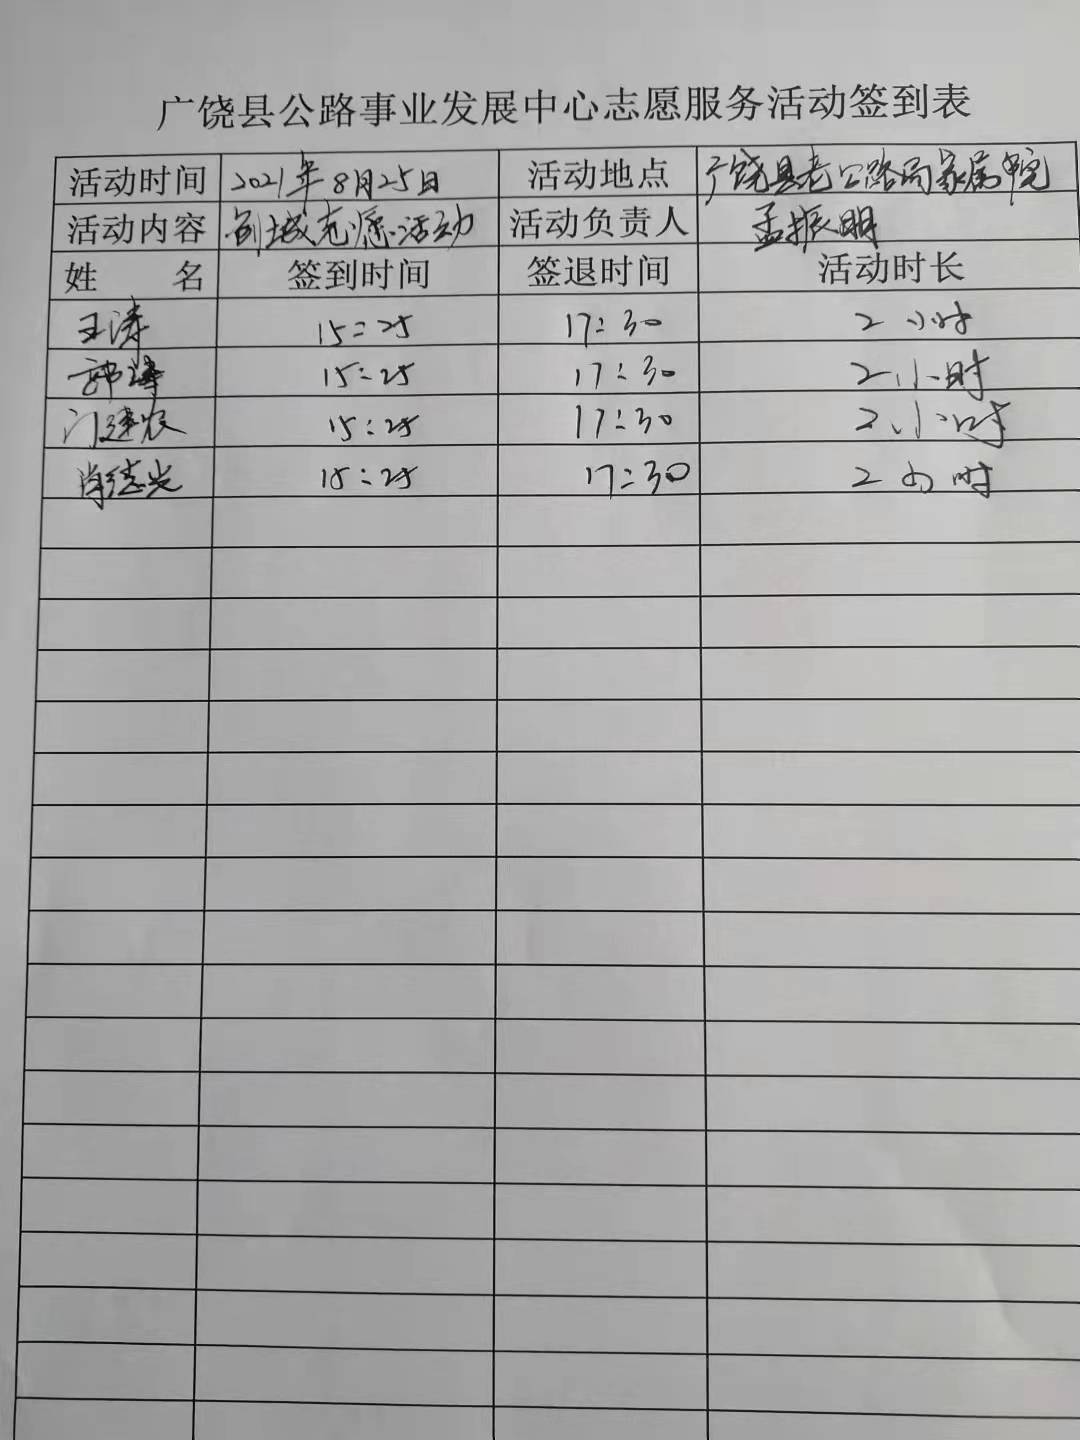 广饶县公路事业发展中心志愿服务活动签到表
活动时间 2021年8月25日 活动地点 广饶县老公路局家属院
活动内容 创城志愿活动 活动负责人 孟振明
姓 名 签到时间 签退时间 活动时长
王涛 15:25 17:30 2小时
郭 15:25 17:30 2小时
门建农 15:25 17:30 2小时
肖志光 15:25 17:30 2小时